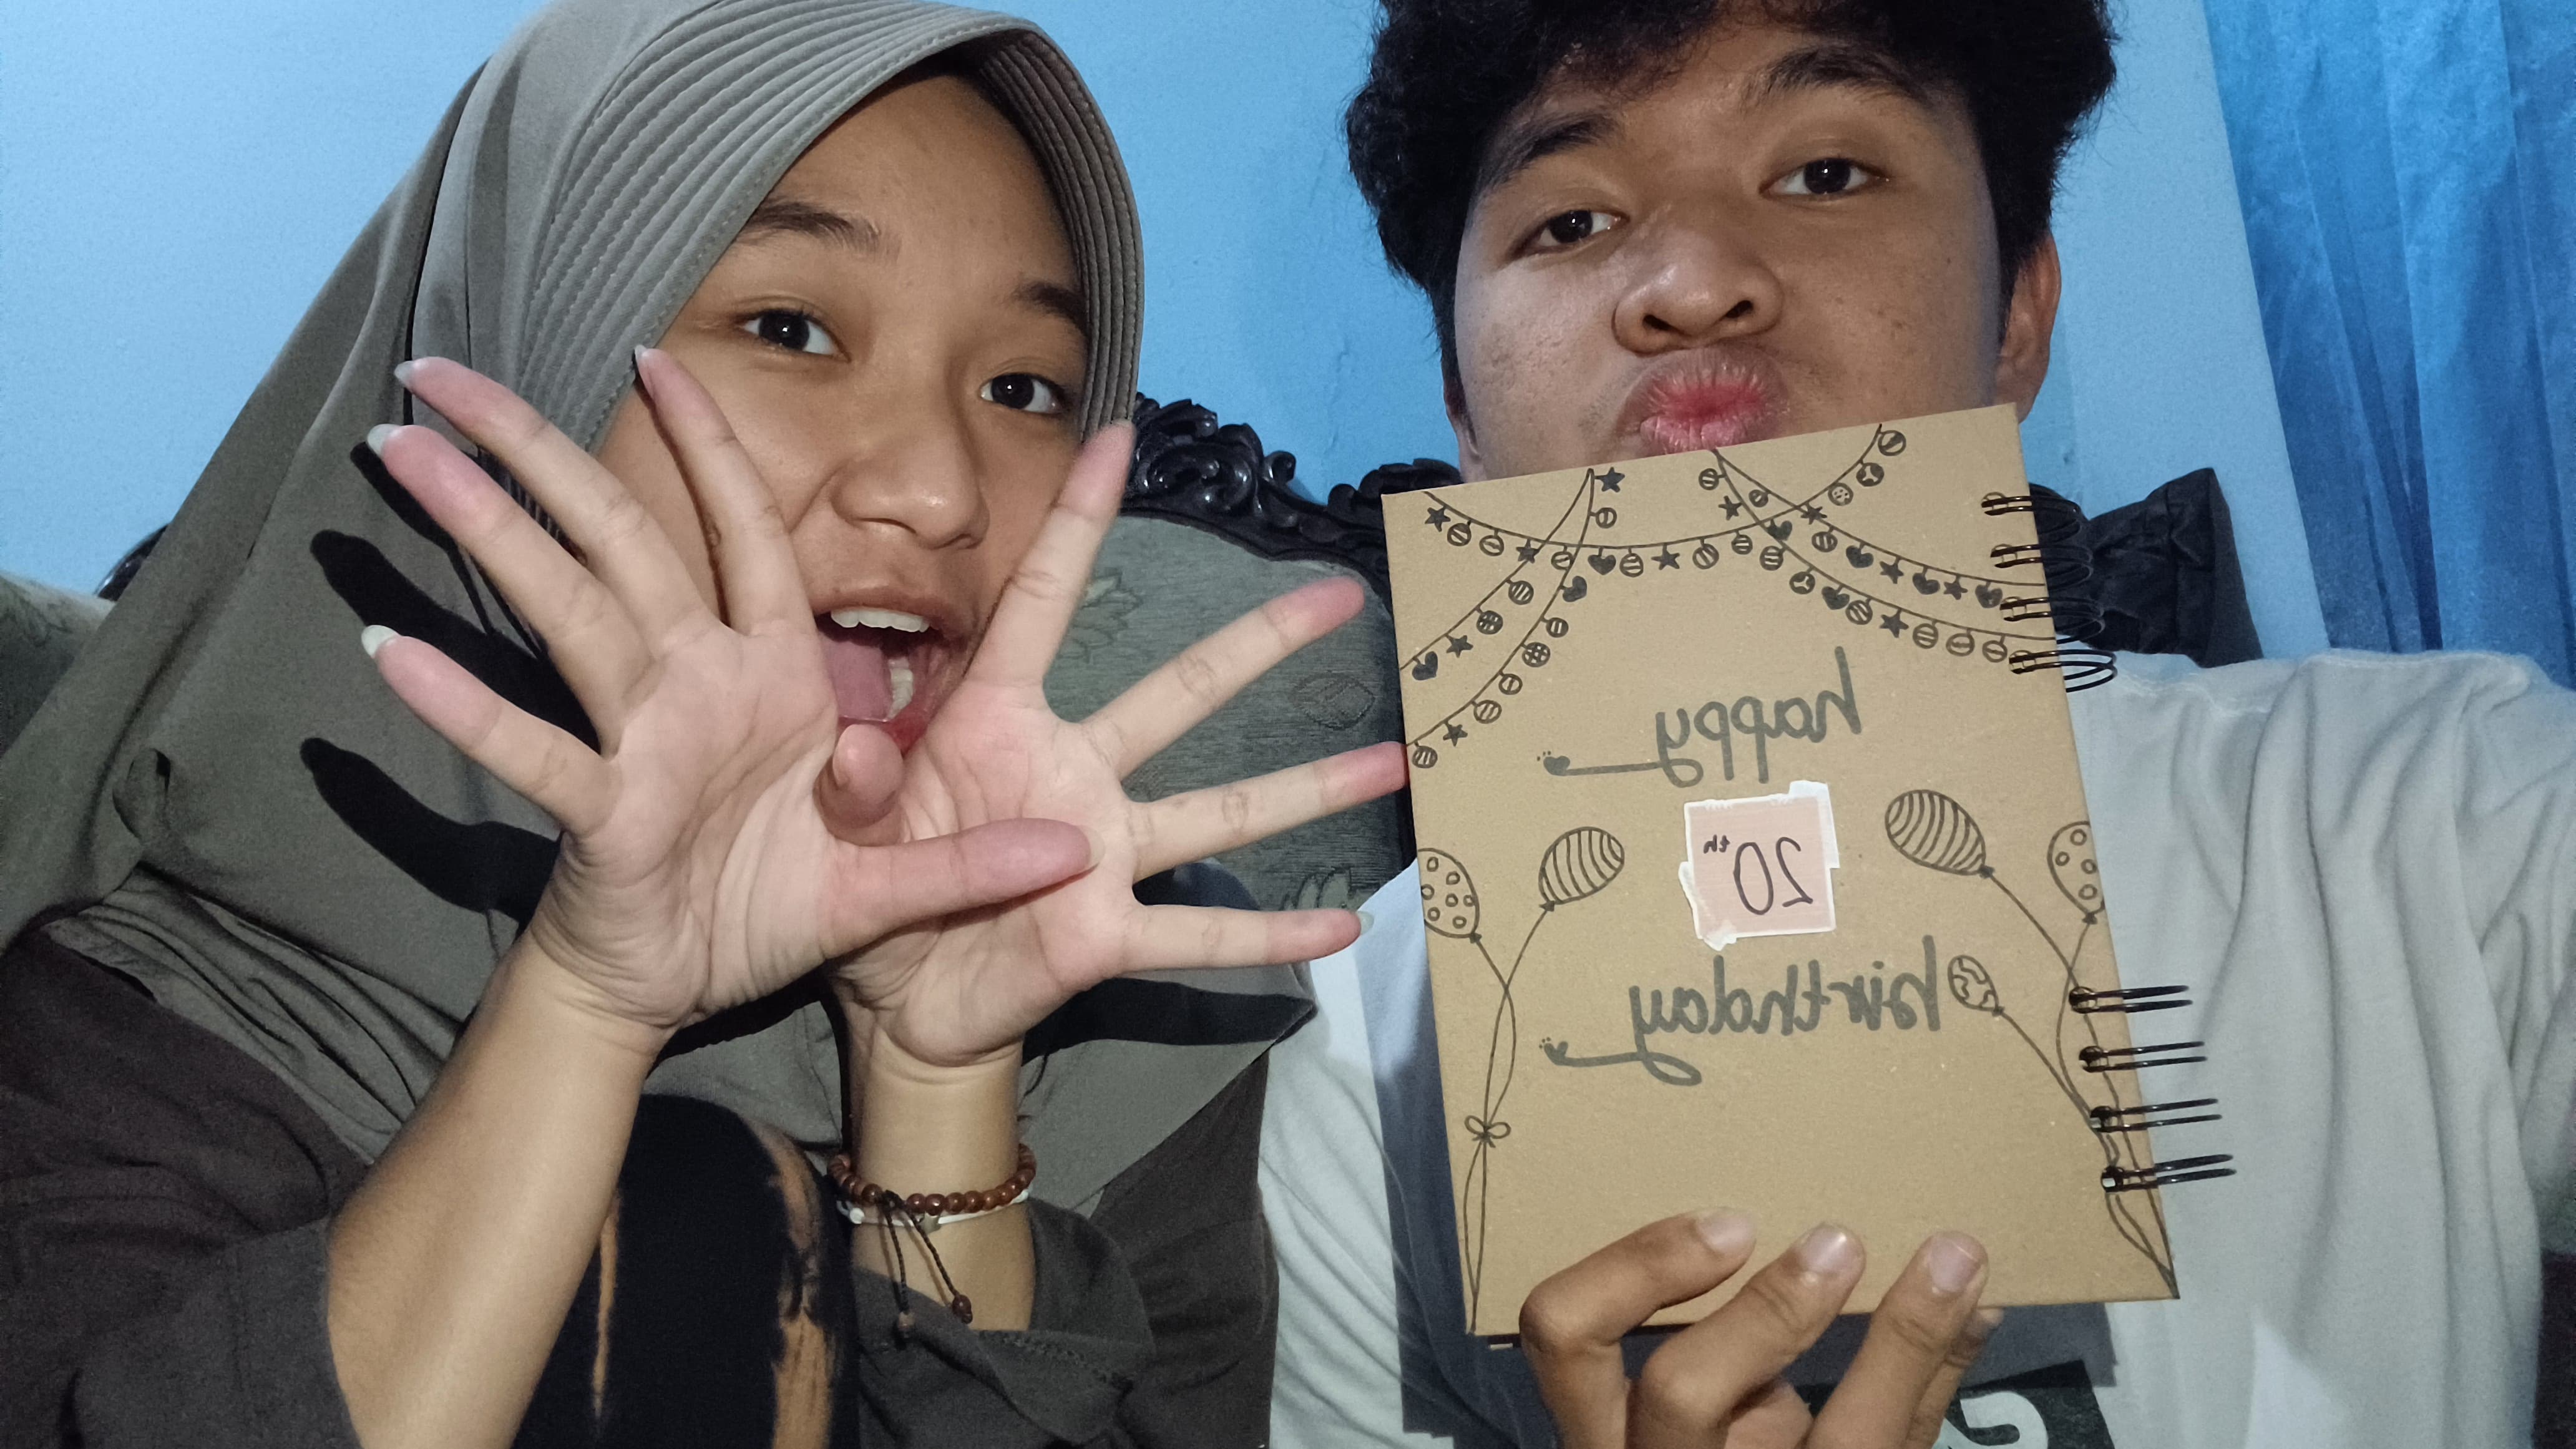 happy
20th
birthday